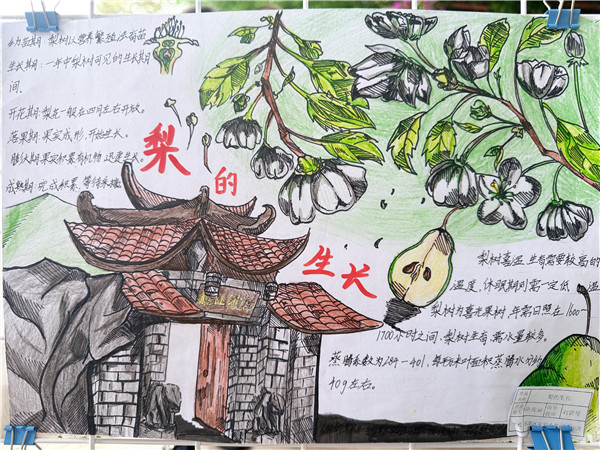 幼苗期：梨树以营养繁殖法育苗
生长期：一年中梨树可见的生长期
间.
开花期：梨花一般在四月左右开放.
落果期：果实成形,开始生长.
膨大期：果实积累有机物,迅速生长.
成熟期：完成积累,等待采摘
梨
的
生长
梨树喜温,生育需要较高的
温度,休眠期则需一定低温
梨树为喜光果树,年需日照在1600~
1700小时之间,梨树生育需水量较多.
蒸腾系数为284—401,每平方米叶面积蒸腾水分约
40g左右.
梨的生长